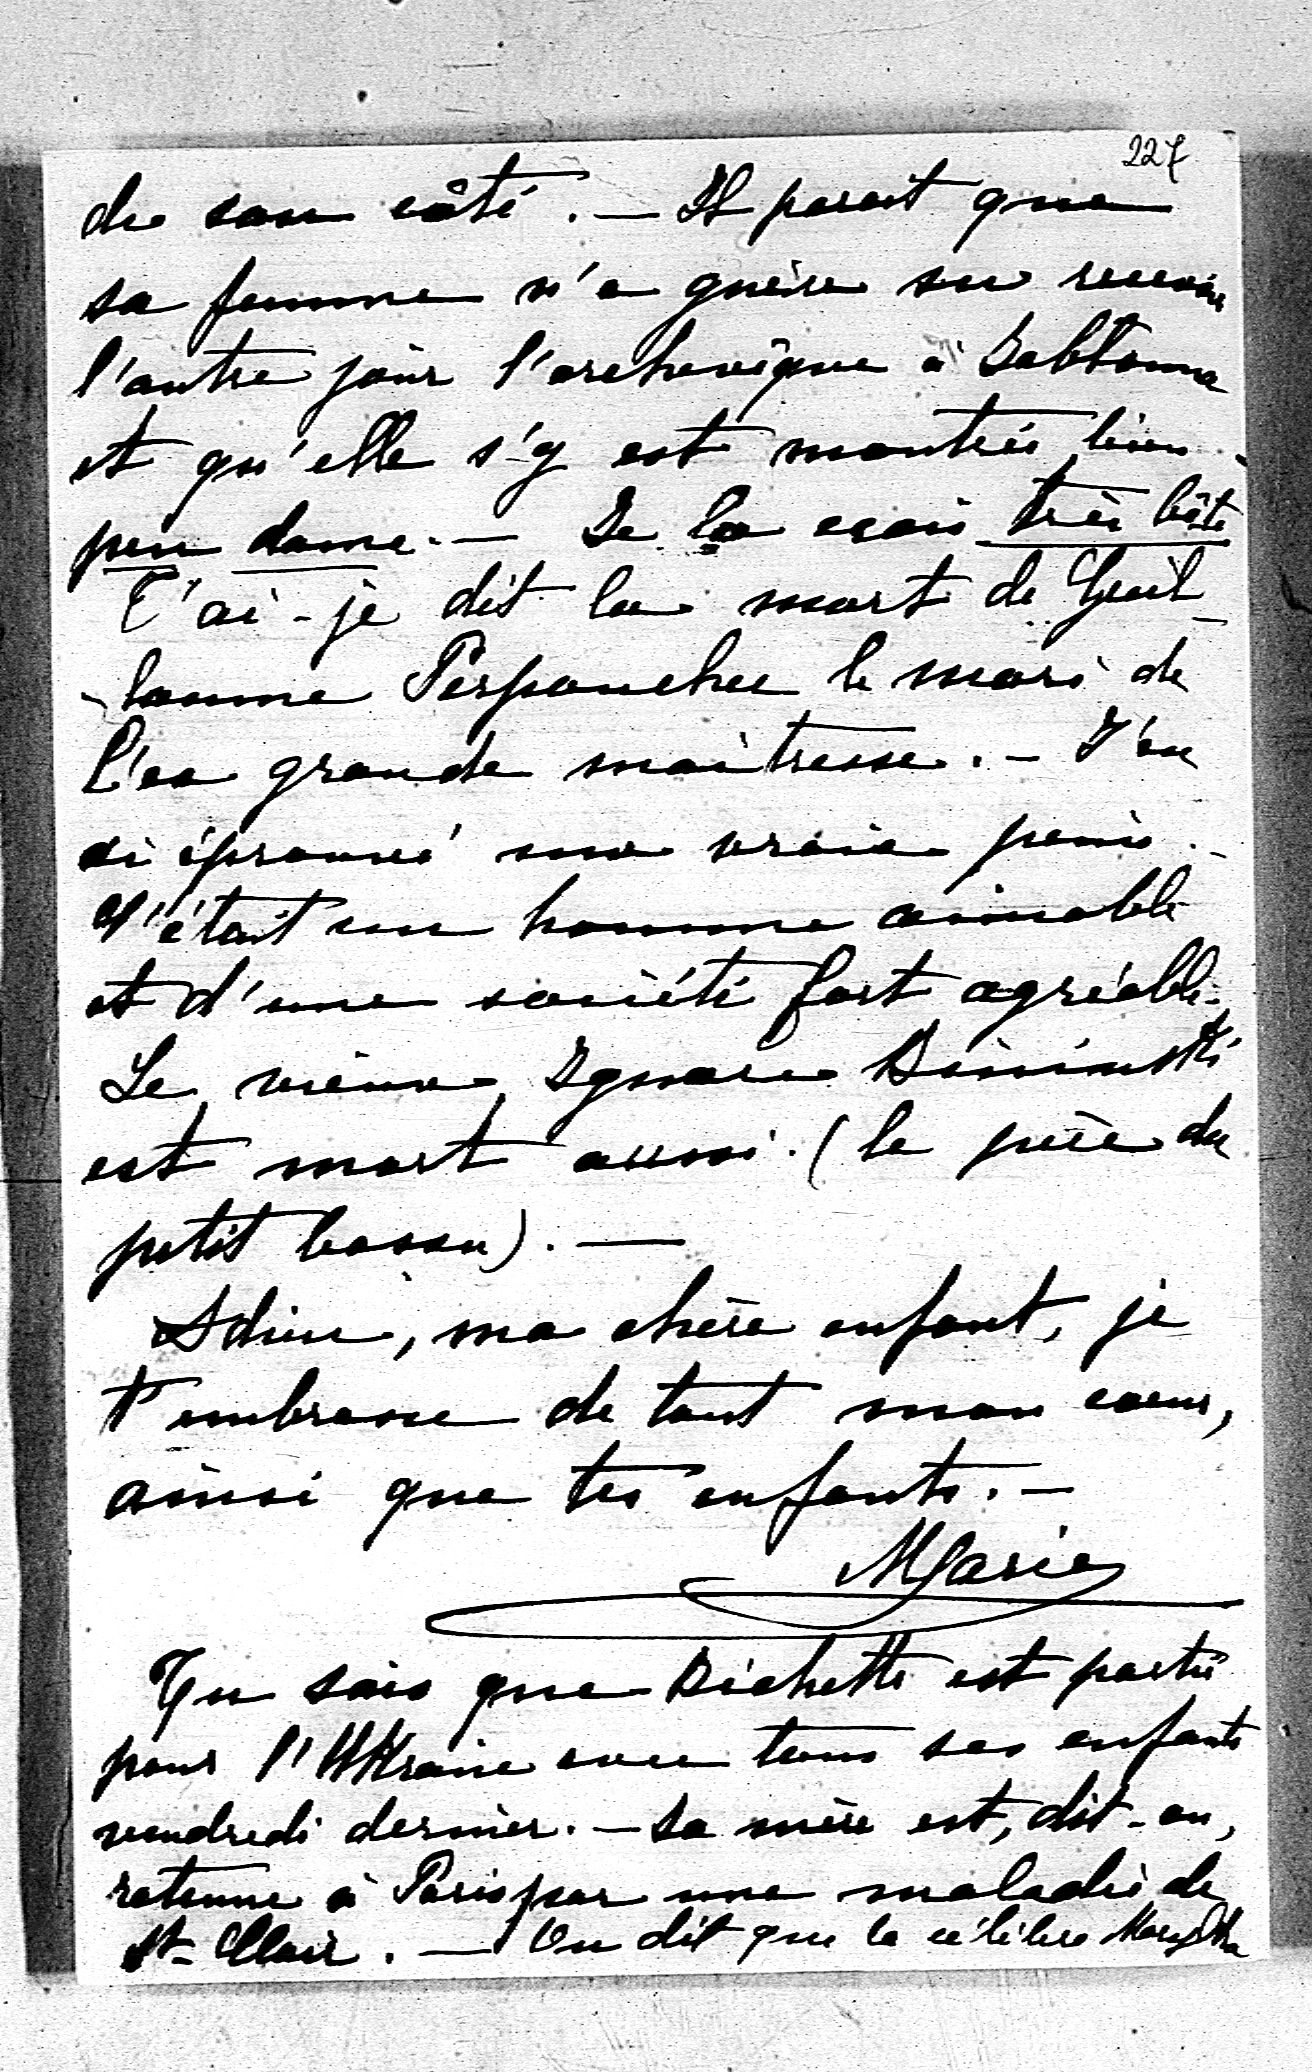 227
de son côté. — Il parait que
sa femme n'a guère su recevoir
l'autre jour l'archevêque à Jabłonna
et qu'elle s'y est montrée bien
peu dame. — Je la crois très bête
T'ai-je dit la mort de Guil-
-laume Perponcher le mari de
l'ex grande maîtresse. — J'en
ai éprouvé une vraie peine. —
C'était un homme aimable
et d'une société fort agréable.
Le vieux Ignace Bninski
est mort aussi. (le père du
petit bossu). —
Adieu, ma chère enfant, je
t'embrasse de tout mon coeur,
ainsi que tes enfants. —
Marie
Tu sais que Bichette est partie
pour l'Ukraine avec tous ses enfants
vendredi dernier. — Sa mère est, dit-on,
retenue à Paris par une maladie de
St-Clair. — On dit que la célèbre